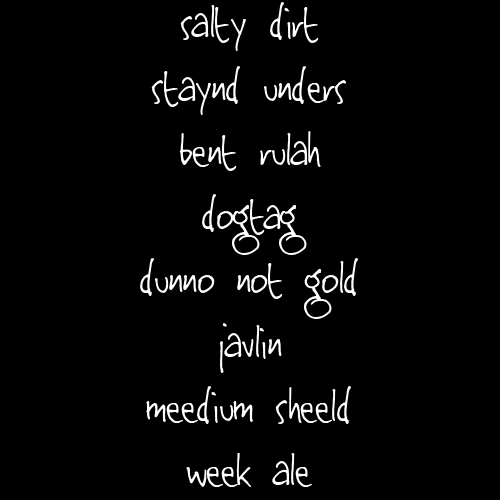 salty dirt
staynd unders
bent rulah
dogtag
dunno not gold
javlin
meedium sheeld
week ale